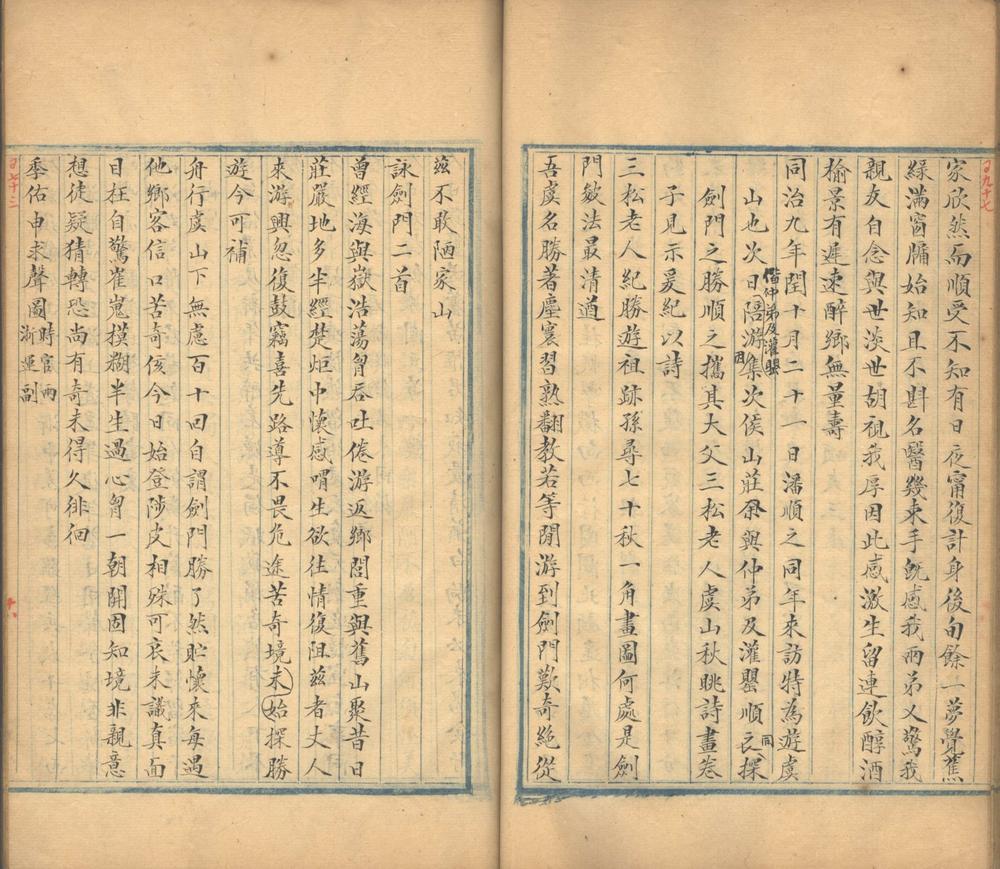 家欣然而順受不知有日夜甯復計身後旬餘一夢覺蕉
綠滿窗牖始知且不斟名醫幾束手既感我兩弟又驚我
親友自念與世淡世胡視我厚因此感激生留連飲醇酒
榆景有遲速醉鄉無量壽
同治九年閏十月二十一日潘順之同年來訪特為遊虞
山也次日陪游集次侯山莊余與仲弟及灌嬰順之探
偕仲弟及灌嬰
同
劍門之勝順之攜其大父三松老人虞山秋眺詩畫卷
子見示爰紀以詩
三松老人紀勝遊祖跡孫尋七十秋一角畫圖何處是劍
門皴法最清遒
吾虞名勝著塵寰習熟翻教若等閒游到劍門歎奇絕從
玆不敢陋家山
詠劍門二首
曾經海與嶽浩蕩胷吞吐倦游返鄉閭重與舊山聚昔日
莊嚴地多半經楚炬中懷感喟生欲往情復阻玆者丈人
來游興忽復鼓竊喜先路導不畏危途苦奇境未始探勝
遊今可補
舟行虞山下無慮百十回自謂劍門勝了然貯懷來每遇
他鄉客信口苦奇侅今日始登陟皮相殊可哀未識真面
目枉自驚崔嵬摸糊半生過心胷一朝開固知境非親意
想徒疑猜轉恐尚有奇未得久徘徊
季佑申求聲圖時官兩
浙運副